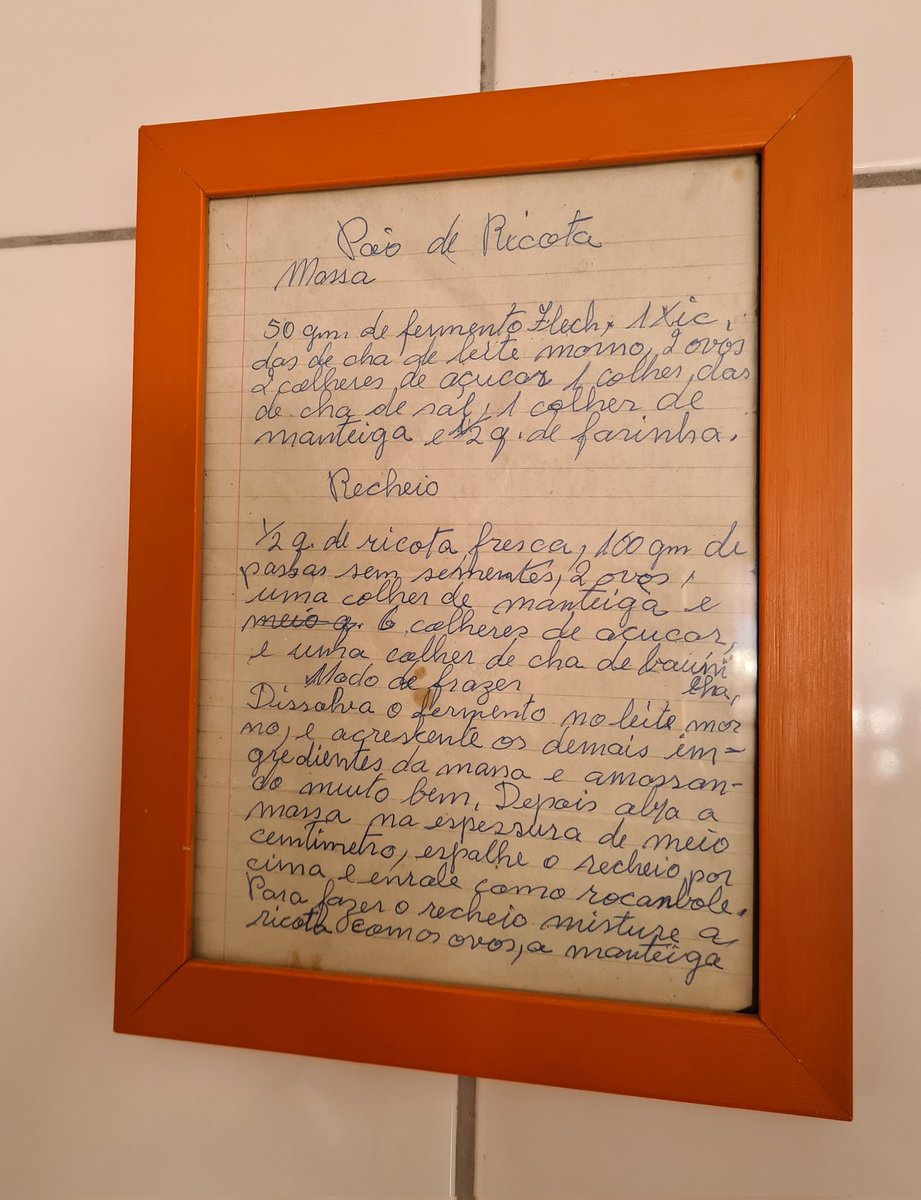 Pão de Ricota
Massa
50 gm. de fermento Flech, 1 Xic,
das de cha de leite morno, 2 ovos
2 colheres de açucar 1 colher das
de cha de sal, 1 colher de
manteiga e 1/2 q. de farinha.
Recheio
1/2 q. de ricota fresca, 100 gm de
passas sem sementes, 2 ovos,
uma colher de manteiga e
meio q. 6 colheres de açucar,
e uma colher de cha de bauni
lha,
Modo de frazer
Dissolva o fermento no leite mor
no, e acrescente os demais im=
gredientes da massa e amassan-
do muito bem. Depois abra a
massa na espessura de meio
centimetro, espalhe o recheio por
cima e enrole como rocanbole.
Para fazer o recheio misture a
ricota com os ovos, a manteiga